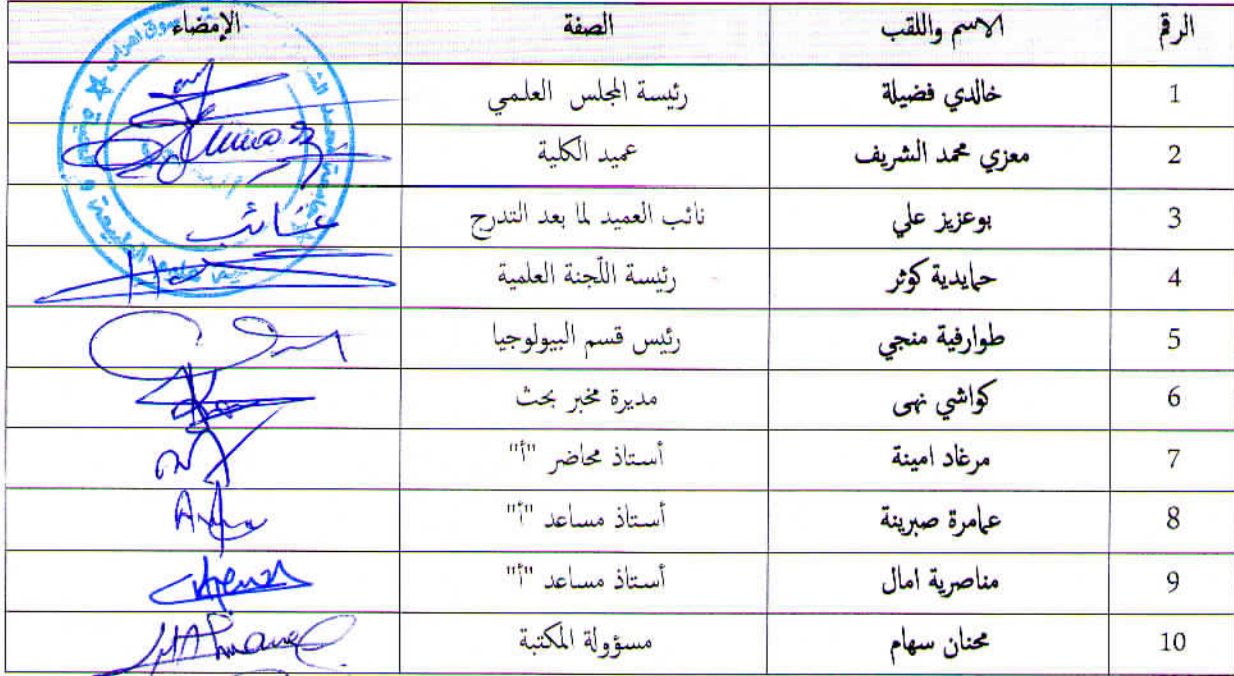 الرقم الاسم واللقب الصفة الإمضاء
1 خالدي فضيلة رئيسة المجلس العلمي
2 معزي محمد الشريف عميد الكلية
3 بوعزيز علي نائب العميد لما بعد التدرج غائب
4 حمايدية كوثر رئيسة اللّجنة العلمية
5 طوارفية منجي رئيس قسم البيولوجيا
6 كواشي نهى مديرة مخبر بحث
7 مرغاد امينة أستاذ محاضر "أ"
8 عمامرة صبرينة أستاذ مساعد "أ"
9 مناصرية امال أستاذ مساعد "أ"
10 محنان سهام مسؤولة المكتبة